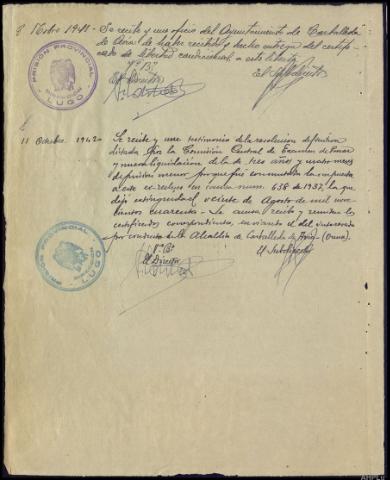 8 Febro 1941 - Se recibe y une oficio del Ayuntamiento de Carballeda
de Avia de haber recibido y hecho entrega del certifi-
cado de libertad condicional a este liberto
Vº Bº
El Director
El Subdirector
PRISION PROVINCIAL
LUGO
11 Octubre 1942 - Se recibe y une testimonio de la resolucion definitiva
dictada por la Comisión Central de Examen de Penas
y nueva liquidación de la de tres años y cuatro meses
de prision menor por que fué conmutada la impuesta
a este co-recluso en causa num. 638 de 1937, la que
dejó extinguida el veinte de Agosto de mil nove-
cientos cuarenta - Se unen, recibe y remiten los
certificados correspondientes, enviando el del interesado
por conducto de la Alcaldía de Carballeda de Avia - (Orense).
Vº Bº
El Director
El Subdirector
PRISION PROVINCIAL
LUGO